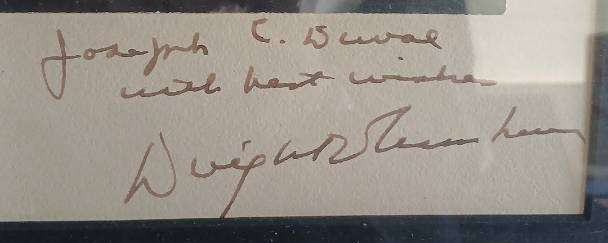 Joseph C. Duval
with best wishes
Dwight D Eisenhower